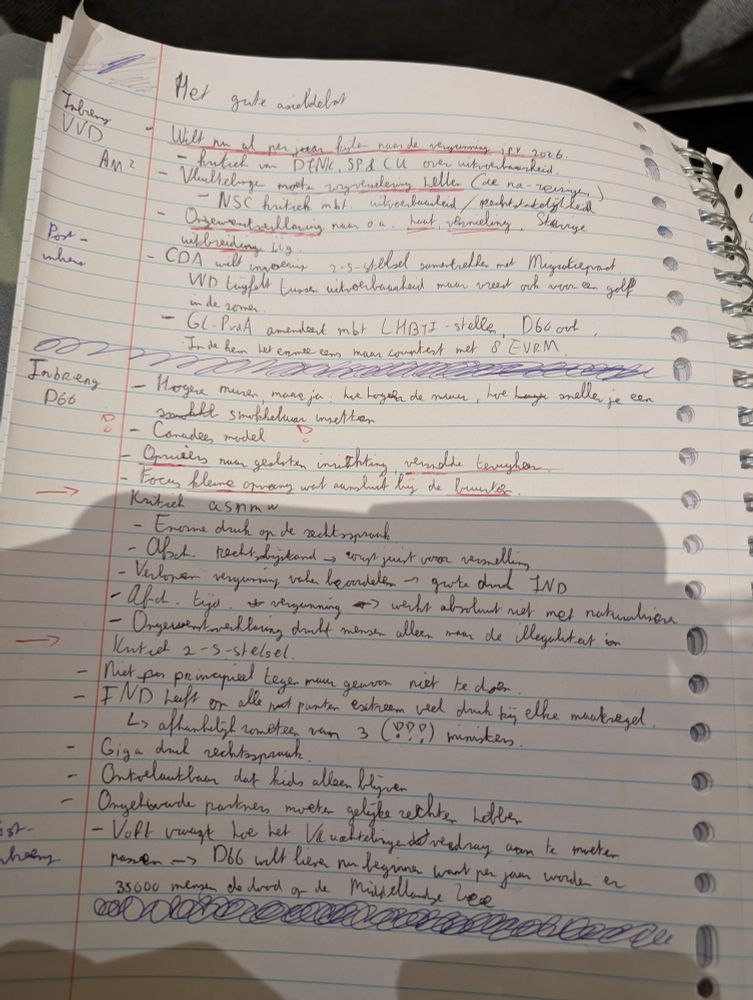 Het grote asieldebat
Inbreng VVD
- Wilt nu al per jaar kijken naar de vergunning ipv 2026.
- Kritiek van DENK, SP & CU over uitvoerbaarheid.
Am 2
- Vluchtelingen moeten zorgverzekering hebben (de na-reizigers)
- NSC kritiek mbt. uitvoerbaarheid / rechtstatelijkheid
- Ongewenstverklaring naar o.a. haat, vernieling. Stevige
uitbreiding
Post-inbreng
- CDA wilt invoering 2-S-stelsel samentrekken met Migratiepact.
VVD twijfelt tussen uitvoerbaarheid maar vreest ook voor een golf
in de zomer.
- GL-PvdA amendeert mbt LHBTI-stellen, D66 ook.
In de kern het ermee eens maar countert met 8 EVRM.
Inbreng D66
- Hogere muren, maar ja: hoe hoger de muur, hoe sneller je een
smokkelaar inzetten
- Canadees model
- Opvriezers naar gesloten inrichting, versnelde terugkeer.
- Focus kleine opvang wat aansluit bij de buurten.
→ Kritiek asnmw
- Enorme druk op de rechtspraak
- Afsch. rechtsbijstand → zorgt juist voor versnelling
- Verlopen vergunning vaker beoordelen → grote druk IND
- Afsch. tijd. vergunning → werkt absoluut niet met naturalisere
- Ongewenstverklaring drukt mensen alleen maar de illegaliteit in
→ Kritiek 2-S-stelsel.
- Niet per principieel tegen maar gewoon niet te doen.
- IND heeft op alle punten extreem veel druk bij elke maatregel.
↳ afhankelijk zometeen van 3 (???) ministers.
- Giga druk rechtspraak
- Onverklaarbaar dat kids alleen blijven
- Ongehuwde partners moeten gelijke rechten hebben
Post-inbreng
- Volt vraagt hoe het Vluchtelingenverdrag aan te moeten
passen → D66 wilt liever nu beginnen want per jaar worden er
35000 mensen de dood op de Middellandse Zee